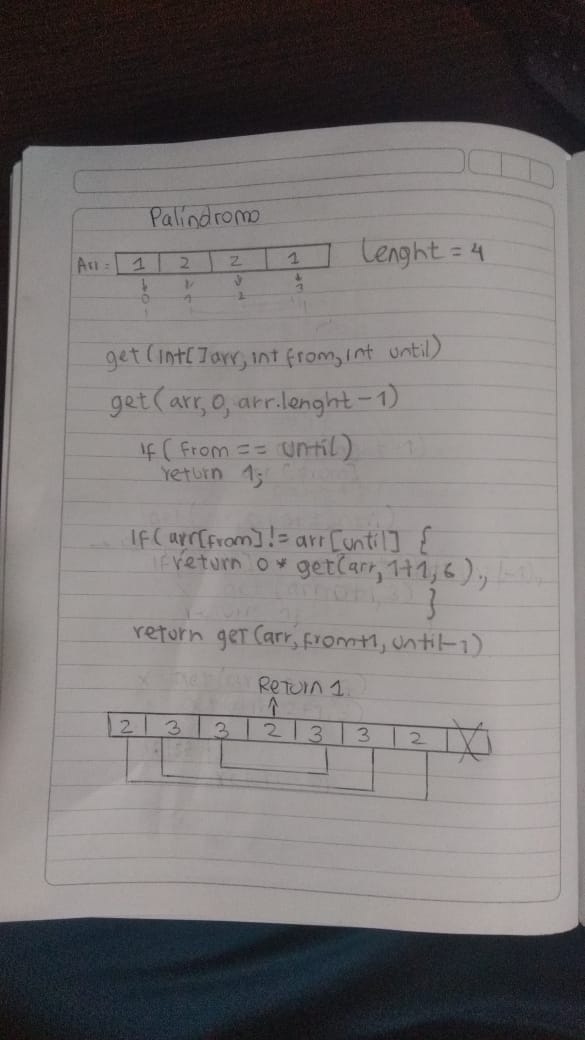 Palindromo
Arr = 1 2 2 1 Lenght = 4
0 1 2 3
get (int[] arr, int from, int until)
get (arr, 0, arr.lenght - 1)
If ( from == until )
return 1;
If ( arr[from] != arr [until] {
return 0 * get(arr, 1+1, 6);
}
return get (arr, from+1, until-1)
Return 1
2 3 3 2 3 3 2